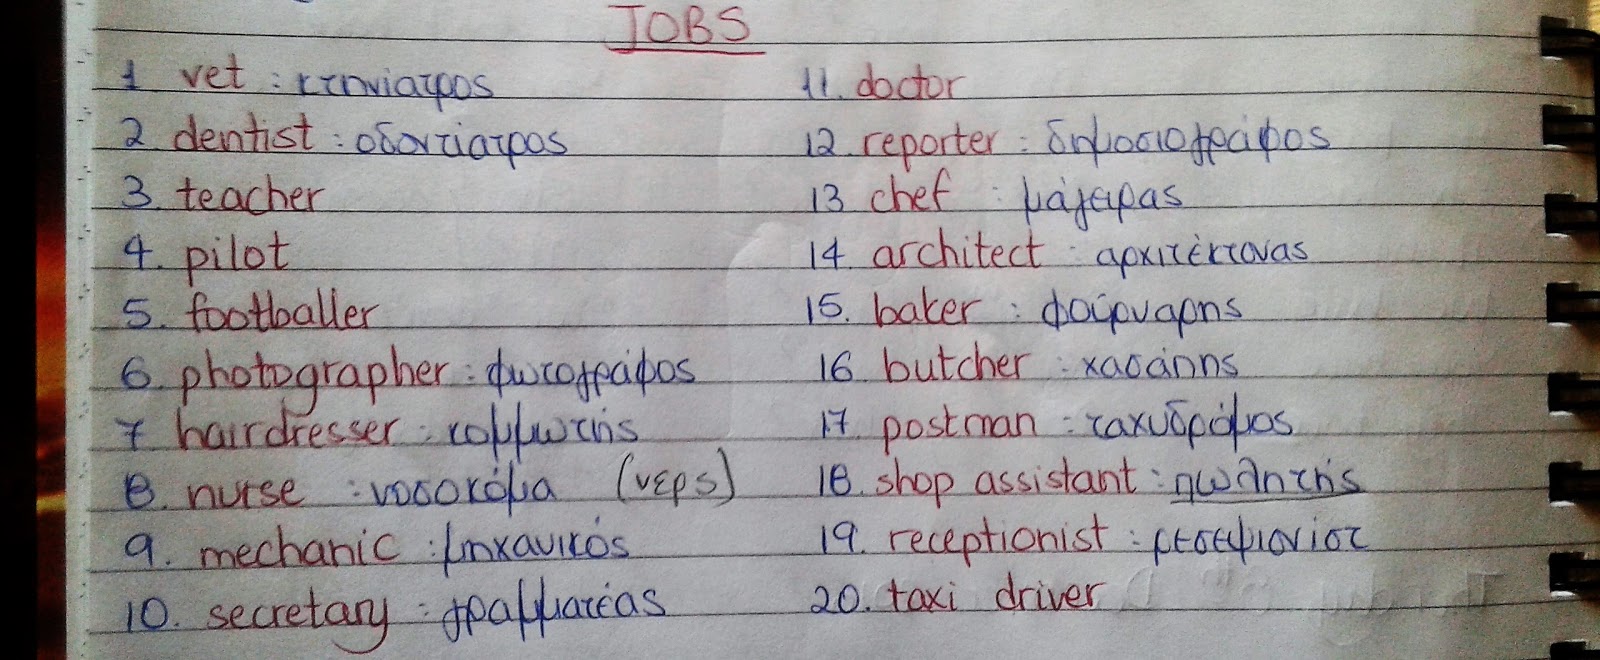 JOBS
1 vet : κτηνίατρος
2 dentist : οδοντίατρος
3 teacher
4. pilot
5. footballer
6. photographer : φωτογράφος
7 hairdresser : κομμωτής
8 nurse : νοσοκόμα (νερς)
9. mechanic : μηχανικός
10. secretary : γραμματέας
11. doctor
12. reporter : δημοσιογράφος
13 chef : μάγειρας
14. architect : αρχιτέκτονας
15. baker : φούρναρης
16 butcher : χασάπης
17. postman : ταχυδρόμος
18. shop assistant : πωλητής
19. receptionist : ρεσεψιονίστ
20. taxi driver